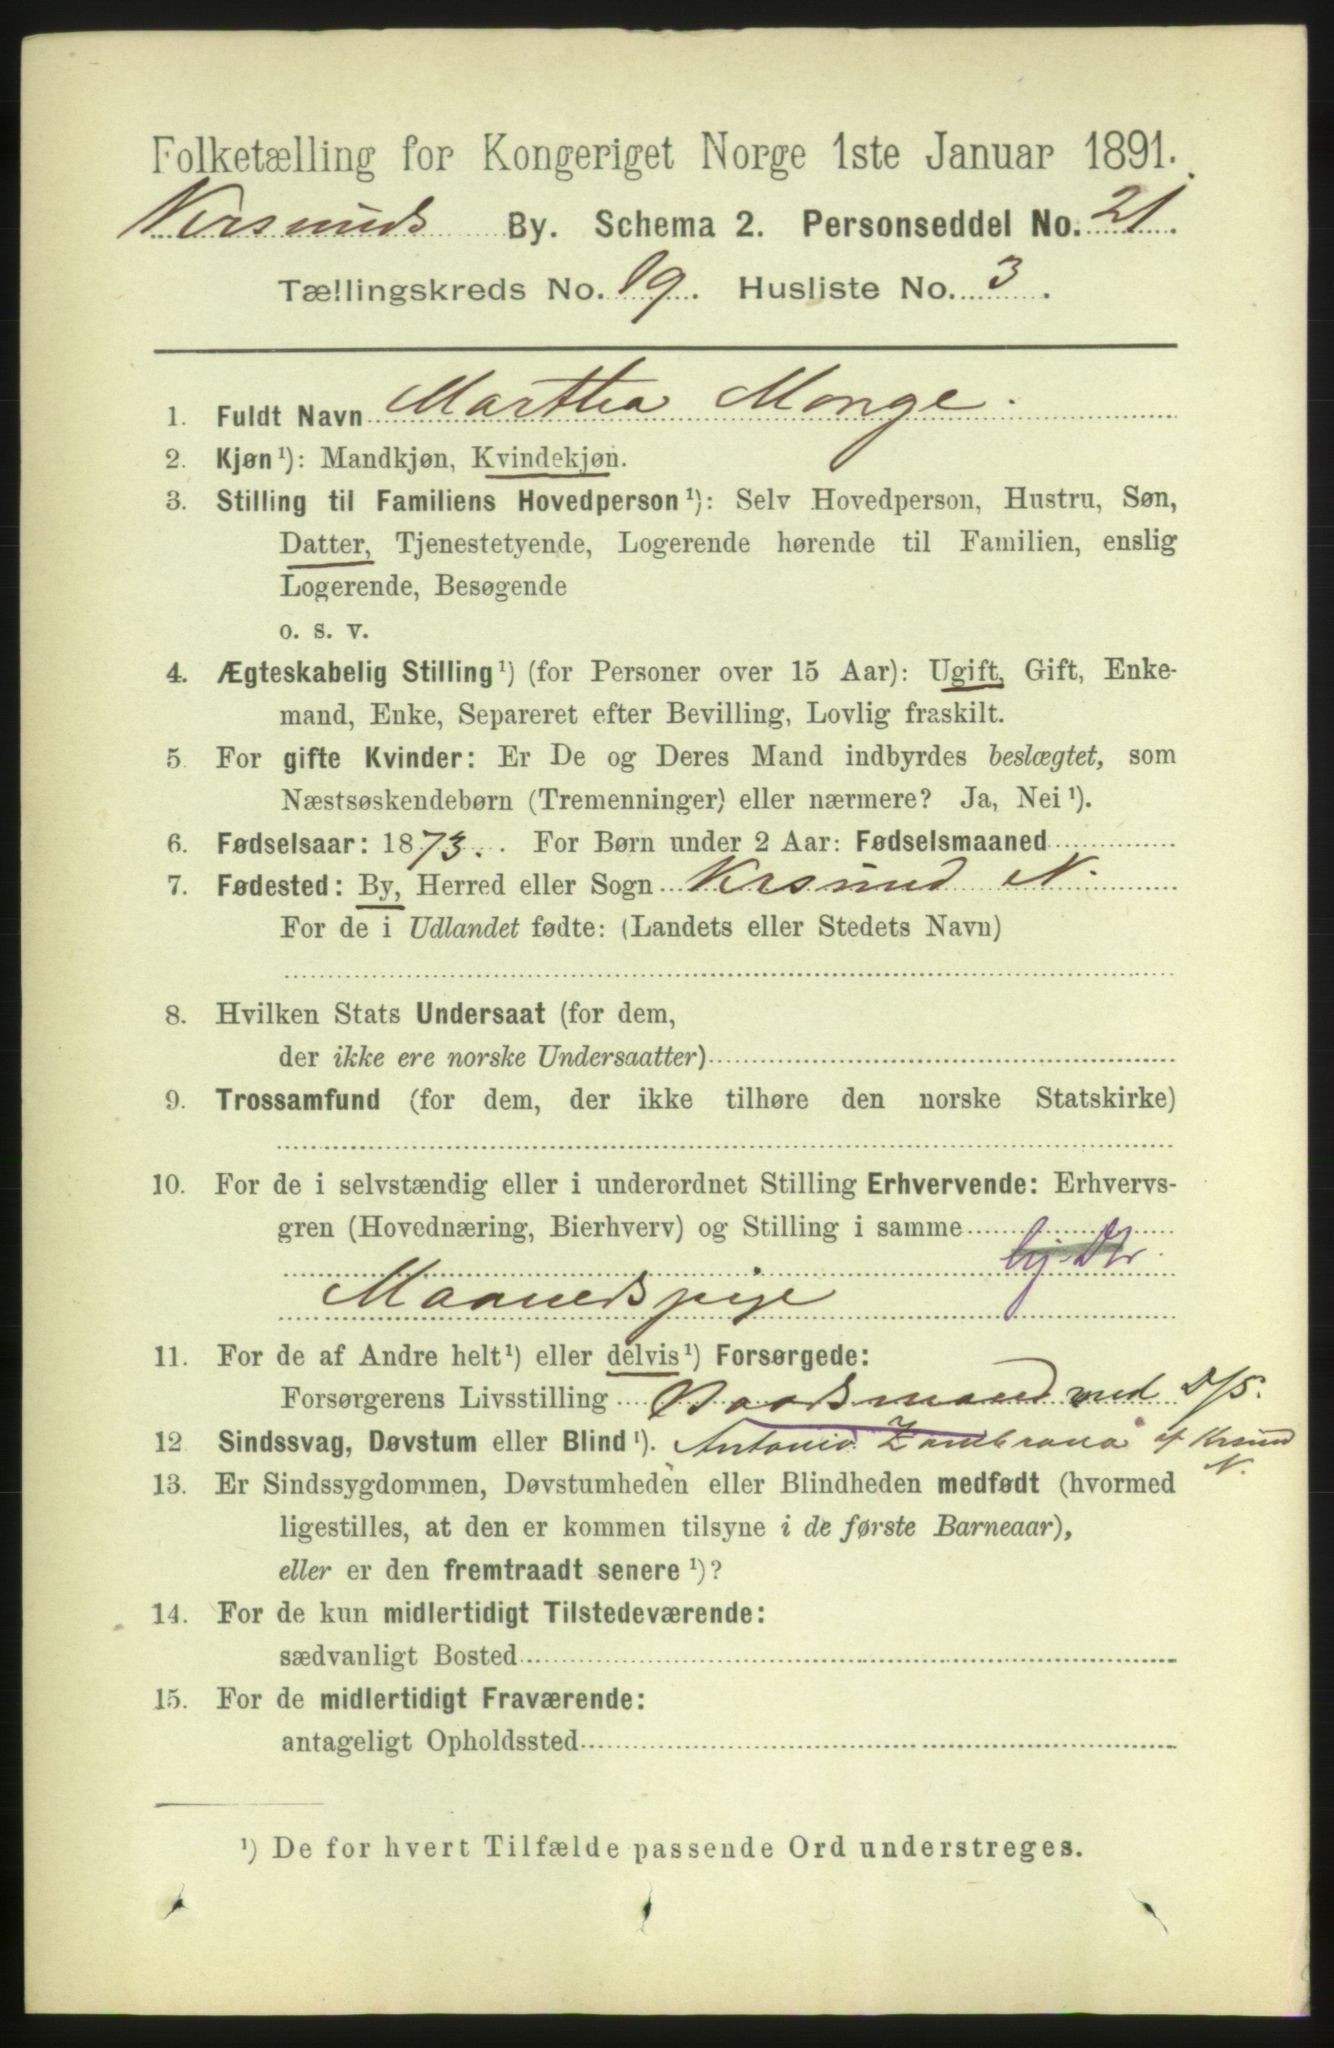 Folketælling for Kongeriget Norge 1ste Januar 1891.
Krsunds By. Schema 2. Personseddel No. 21.
Tællingskreds No. 19. Husliste No. 3.
1. Fuldt Navn Marthea Monge.
2. Kjøn¹): Mandkjøn, Kvindekjøn.
3. Stilling til Familiens Hovedperson¹): Selv Hovedperson, Hustru, Søn,
Datter, Tjenestetyende, Logerende hørende til Familien, enslig
Logerende, Besøgende
o. s. v.
4. Ægteskabelig Stilling¹) (for Personer over 15 Aar): Ugift, Gift, Enke-
mand, Enke, Separeret efter Bevilling, Lovlig fraskilt.
5. For gifte Kvinder: Er De og Deres Mand indbyrdes beslægtet, som
Næstsøskendebørn (Tremenninger) eller nærmere? Ja, Nei¹).
6. Fødselsaar: 1873. For Børn under 2 Aar: Fødselsmaaned
7. Fødested: By, Herred eller Sogn Krsund N.
For de i Udlandet fødte: (Landets eller Stedets Navn)
8. Hvilken Stats Undersaat (for dem,
der ikke ere norske Undersaatter)
9. Trossamfund (for dem, der ikke tilhøre den norske Statskirke)
10. For de i selvstændig eller i underordnet Stilling Erhvervende: Erhvervs-
gren (Hovednæring, Bierhverv) og Stilling i samme
Maanedspige
11. For de af Andre helt¹) eller delvis¹) Forsørgede:
Forsørgerens Livsstilling Baadsmand med D/S.
12 Sindssvag, Døvstum eller Blind¹). Antonio Zambrana af Krsund
N.
13. Er Sindssygdommen, Døvstumheden eller Blindheden medfødt (hvormed
ligestilles, at den er kommen tilsyne i de første Barneaar),
eller er den fremtraadt senere¹)?
14. For de kun midlertidigt Tilstedeværende:
sædvanligt Bosted
15. For de midlertidigt Fraværende:
antageligt Opholdssted
¹) De for hvert Tilfælde passende Ord understreges.